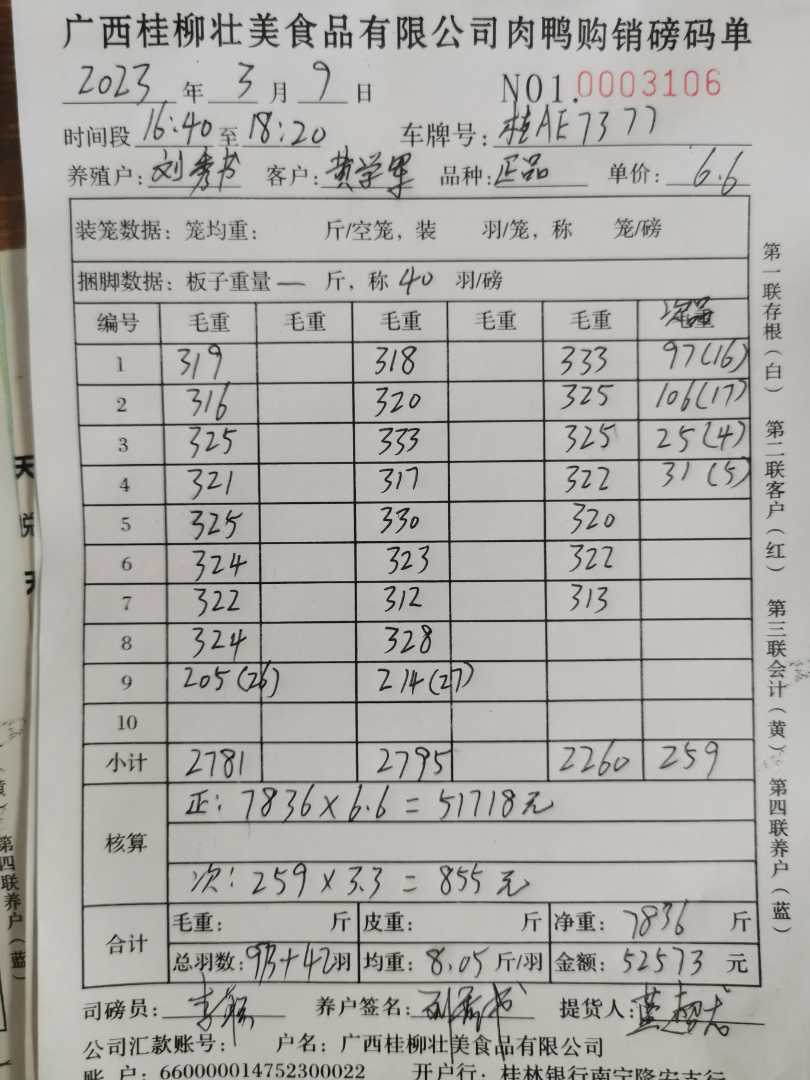 广西桂柳壮美食品有限公司肉鸭购销磅码单
2023 年 3 月 9 日 NO1.0003106
时间段 16:40 至 18:20 车牌号: 桂AE7377
养殖户: 刘秀书 客户: 黄学军 品种: 正品 单价: 6.6
装笼数据: 笼均重: 斤/空笼, 装 羽/笼, 称 笼/磅
捆脚数据: 板子重量 — 斤, 称 40 羽/磅
编号 毛重 毛重 毛重 毛重 毛重 次品
1 319 318 333 97(16)
2 316 320 325 106(17)
3 325 333 325 25(4)
4 321 317 322 31(5)
5 325 330 320
6 324 323 322
7 322 312 313
8 324 328
9 205(26) 214(27)
10
小计 2781 2795 2260 259
核算 正: 7836×6.6=51718元
次: 259×3.3=855元
合计 毛重: 斤 皮重: 斤 净重: 7836 斤
总羽数: 973+42羽 均重: 8.05 斤/羽 金额: 52573 元
司磅员: 养户签名: 刘秀书 提货人:
公司汇款账号: 户名: 广西桂柳壮美食品有限公司
账 户: 660000014752300022 开户行: 桂林银行南宁隆安支行
第一联存根(白) 第二联客户(红) 第三联会计(黄) 第四联养户(蓝)
天
悦
第四联养户(蓝)